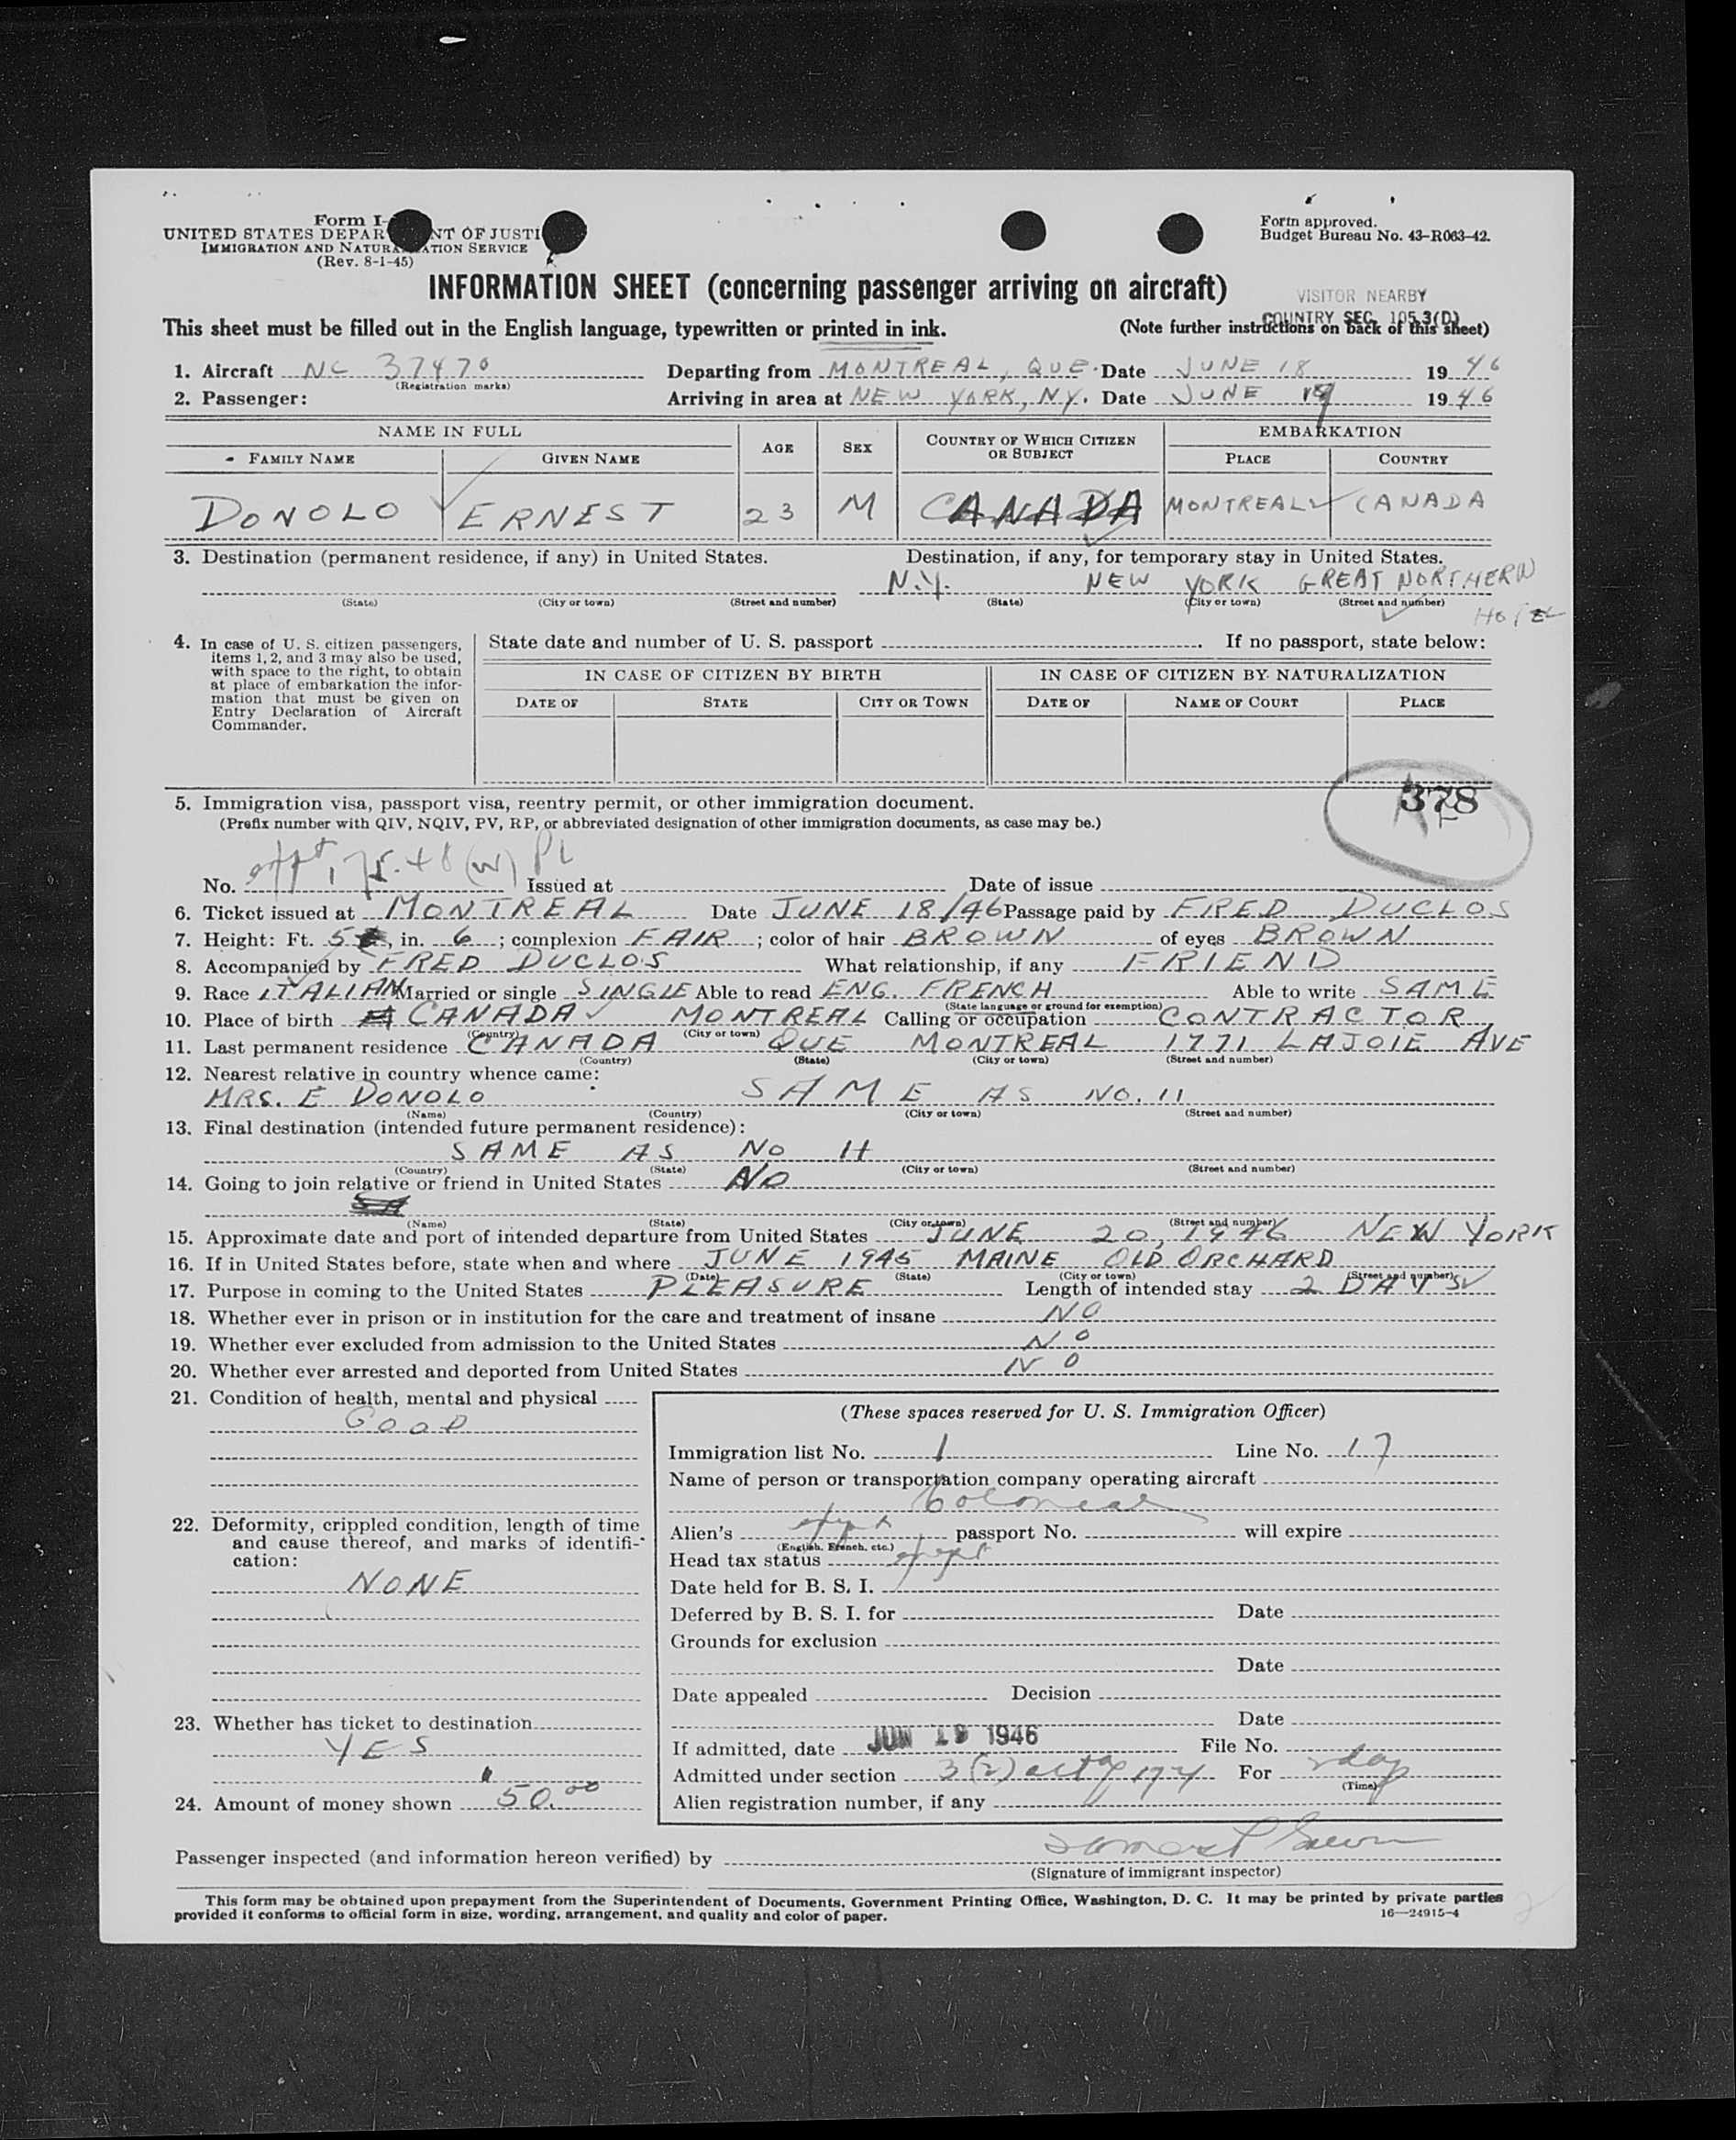 Form I-
UNITED STATES DEPAR NT OF JUSTI
IMMIGRATION AND NATURA ATION SERVICE
(Rev. 8-1-45)
Form approved.
Budget Bureau No. 43-R063-42.
INFORMATION SHEET (concerning passenger arriving on aircraft)
VISITOR NEARBY
COUNTRY SEC. 105.3(D)
This sheet must be filled out in the English language, typewritten or printed in ink. (Note further instructions on back of this sheet)
1. Aircraft NC 37470 Departing from MONTREAL, QUE. Date JUNE 18 1946
(Registration marks)
2. Passenger: Arriving in area at NEW YORK, N.Y. Date JUNE 1946
NAME IN FULL AGE SEX COUNTRY OF WHICH CITIZEN OR SUBJECT EMBARKATION
FAMILY NAME GIVEN NAME PLACE COUNTRY
DONOLO ERNEST 23 M CANADA MONTREAL CANADA
3. Destination (permanent residence, if any) in United States. Destination, if any, for temporary stay in United States.
N.Y. NEW YORK GREAT NORTHERN
(State) (City or town) (Street and number) (State) (City or town) (Street and number)
HOTEL
4. In case of U. S. citizen passengers, items 1, 2, and 3 may also be used, with space to the right, to obtain at place of embarkation the information that must be given on Entry Declaration of Aircraft Commander.
State date and number of U. S. passport . If no passport, state below:
IN CASE OF CITIZEN BY BIRTH IN CASE OF CITIZEN BY NATURALIZATION
DATE OF STATE CITY OR TOWN DATE OF NAME OF COURT PLACE
378
5. Immigration visa, passport visa, reentry permit, or other immigration document.
(Prefix number with QIV, NQIV, PV, RP, or abbreviated designation of other immigration documents, as case may be.)
No. Issued at Date of issue
6. Ticket issued at MONTREAL Date JUNE 18/46 Passage paid by FRED DUCLOS
7. Height: Ft. 5, in. 6; complexion FAIR; color of hair BROWN of eyes BROWN
8. Accompanied by FRED DUCLOS What relationship, if any FRIEND
9. Race ITALIAN Married or single SINGLE Able to read ENG. FRENCH Able to write SAME
(State language or ground for exemption)
10. Place of birth CANADA MONTREAL Calling or occupation CONTRACTOR
(Country) (City or town)
11. Last permanent residence CANADA QUE MONTREAL 1771 LAJOIE AVE
(Country) (State) (City or town) (Street and number)
12. Nearest relative in country whence came:
MRS. E DONOLO SAME AS NO. 11
(Name) (Country) (City or town) (Street and number)
13. Final destination (intended future permanent residence):
SAME AS NO 11
(Country) (State) (City or town) (Street and number)
14. Going to join relative or friend in United States NO
(Name) (State) (City or town) (Street and number)
15. Approximate date and port of intended departure from United States JUNE 20, 1946 NEW YORK
16. If in United States before, state when and where JUNE 1945 MAINE OLD ORCHARD
(Date) (State) (City or town) (Street and number)
17. Purpose in coming to the United States PLEASURE Length of intended stay 2 DAYS
18. Whether ever in prison or in institution for the care and treatment of insane NO
19. Whether ever excluded from admission to the United States NO
20. Whether ever arrested and deported from United States NO
21. Condition of health, mental and physical
GOOD
22. Deformity, crippled condition, length of time and cause thereof, and marks of identification:
NONE
23. Whether has ticket to destination
YES
24. Amount of money shown 50.00
(These spaces reserved for U. S. Immigration Officer)
Immigration list No. 1 Line No. 17
Name of person or transportation company operating aircraft
Colonial
Alien's passport No. will expire
(English, French, etc.)
Head tax status
Date held for B. S. I.
Deferred by B. S. I. for Date
Grounds for exclusion
Date
Date appealed Decision
Date
If admitted, date JUN 19 1946 File No.
Admitted under section 3(2) act of 1924 For 2 day
(Time)
Alien registration number, if any
Passenger inspected (and information hereon verified) by
(Signature of immigrant inspector)
This form may be obtained upon prepayment from the Superintendent of Documents, Government Printing Office, Washington, D. C. It may be printed by private parties
provided it conforms to official form in size, wording, arrangement, and quality and color of paper.
16—24915-4